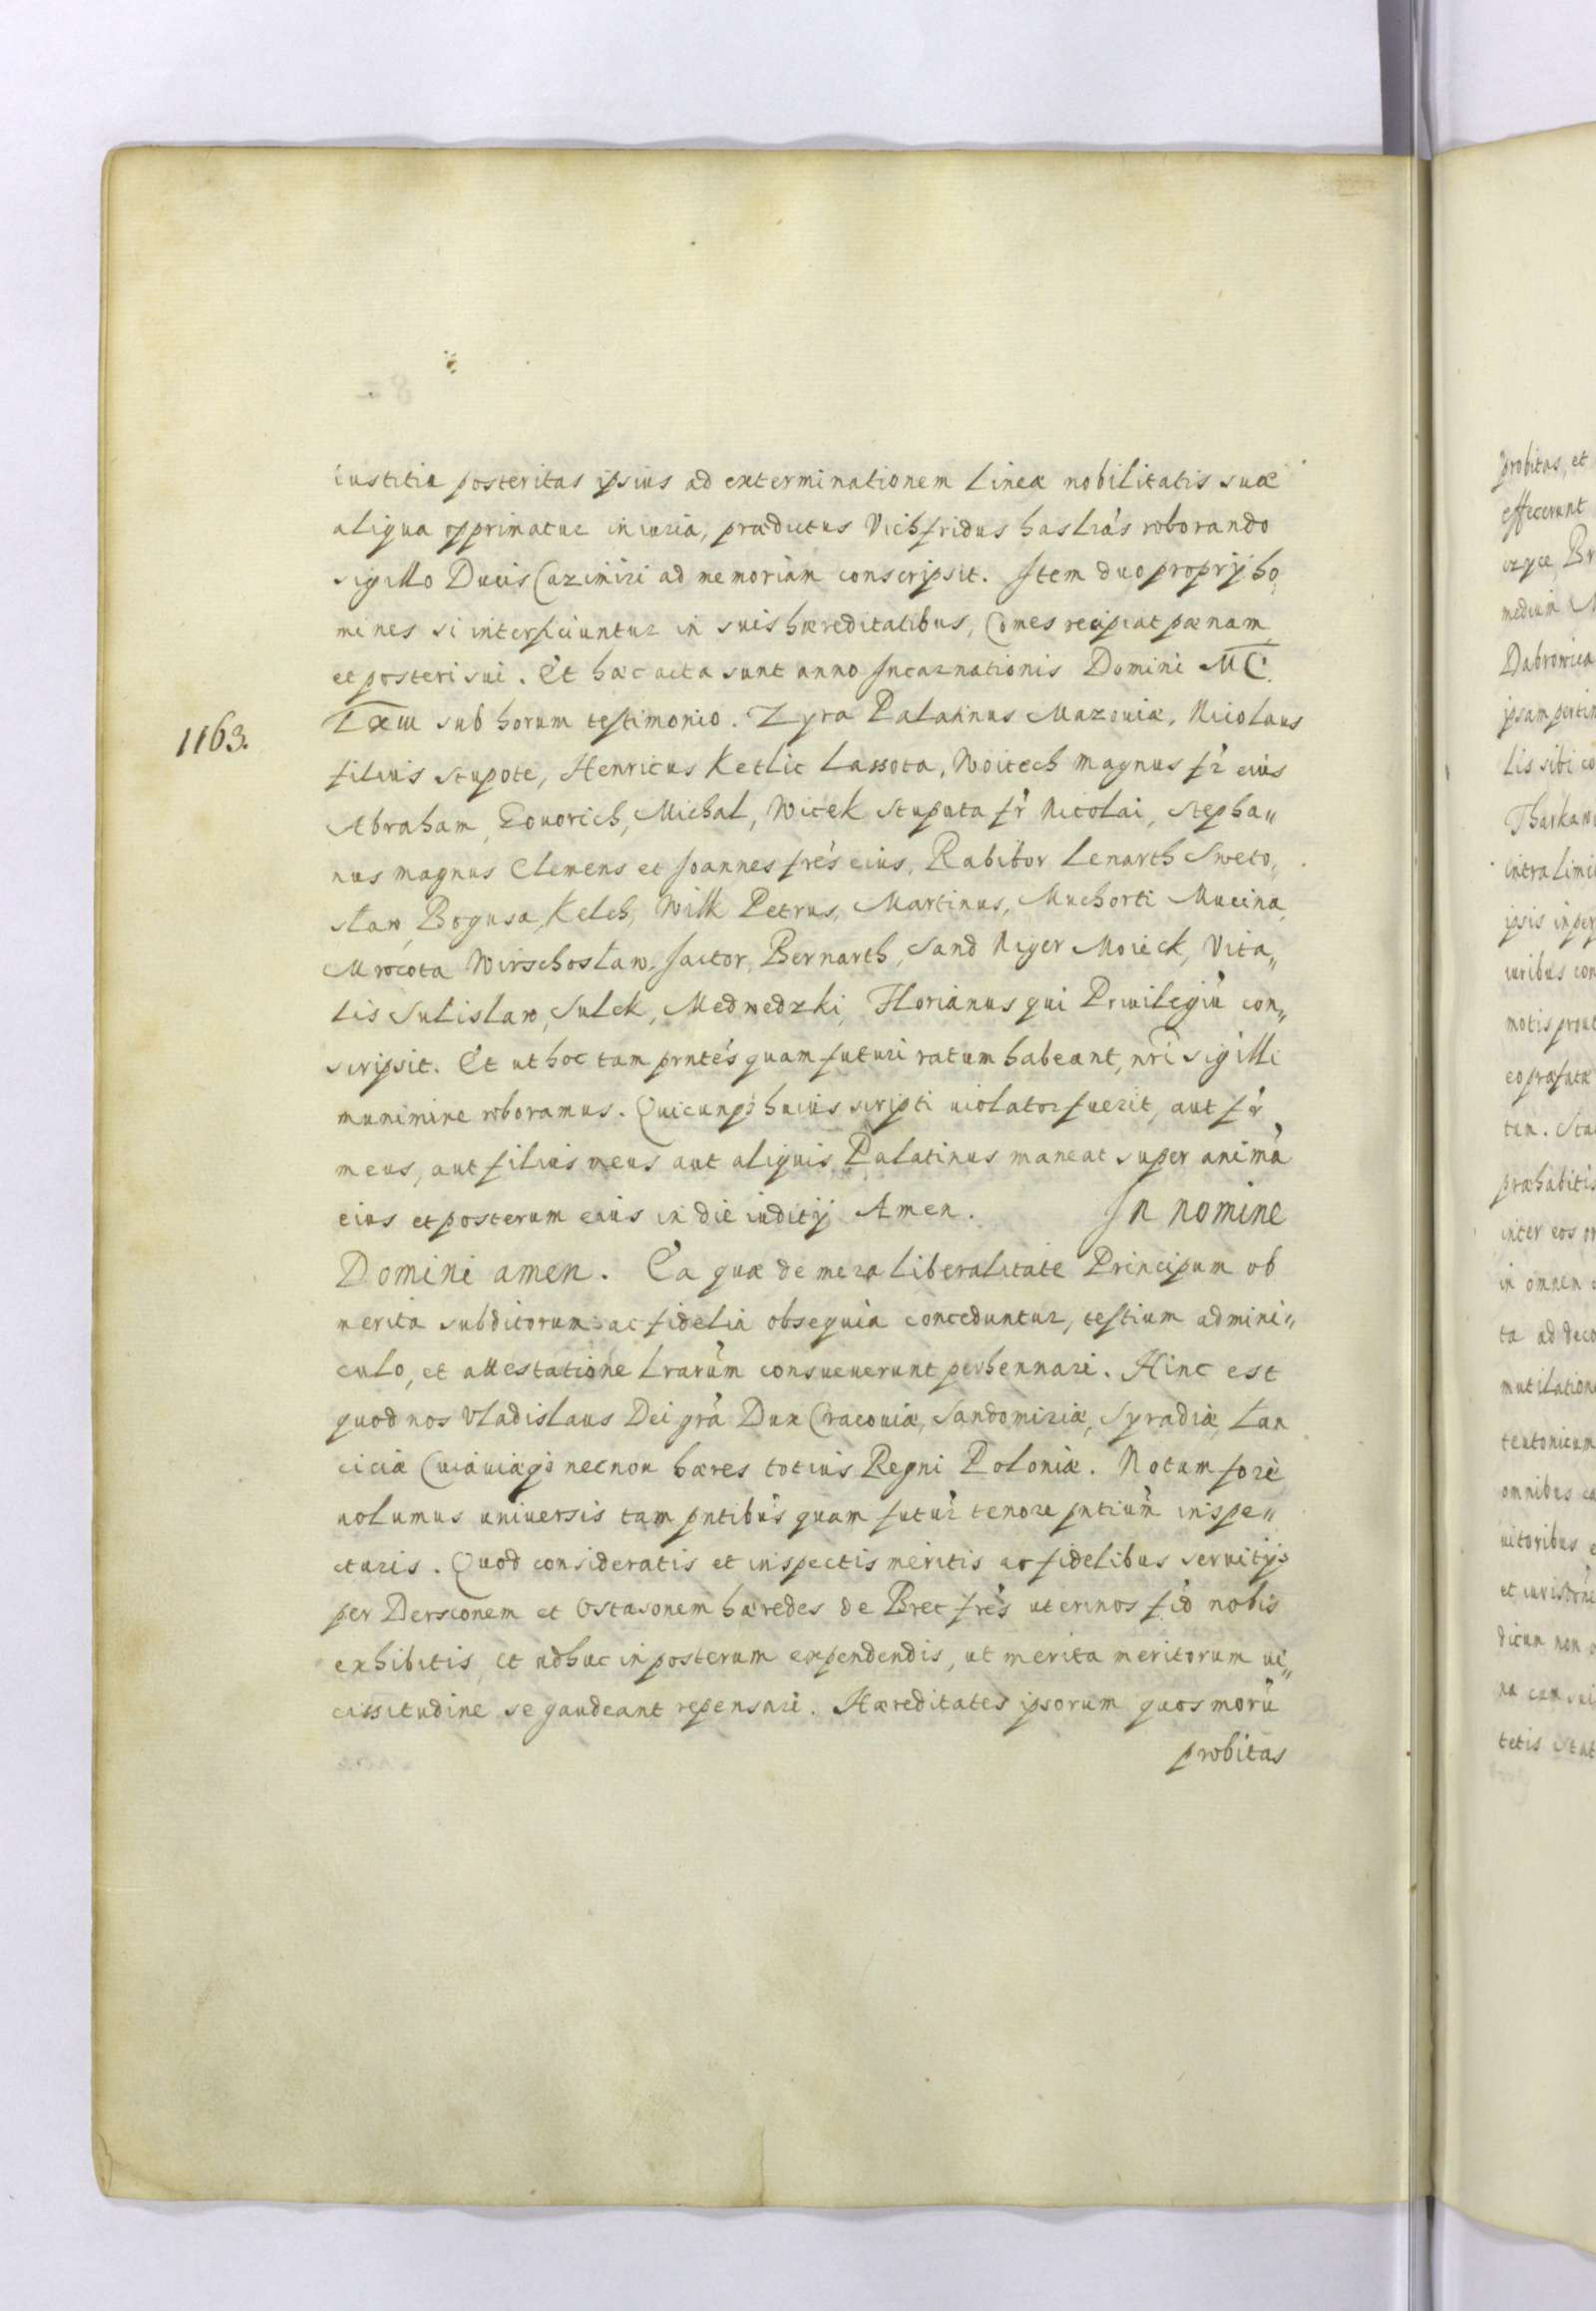 iustitia posteritas ipsius ad exterminationem lineæ nobilitatis suæ
aliqua opprimatur iniuria, prædictus Vichfridus has lrás roborando
sigillo Ducis Cazimiri ad memoriam conscripsit. Item duo proprij ho„
mines si interficiuntur in suis hæreditatibus, Comes recipiat pænam,
et posteri sui. Et hæc acta sunt anno Incarnationis Domini MC.
1163.
Lxiii sub horum testimonio. Zyra Palatinus Mazouiæ, Nicolaus
filius stupote, Henricus Ketlic Lassota, Woitech magnus fr̀ eius
Abraham, Gouorich, Michal, Witek Stupata fr̀ Nicolai, Stepha„
nus magnus Clemens et Joannes frés eius, Rabitor Lenarth Sweto„
slaw, Bogusa, Kelch, Wilk Petrus, Martinus, Muchorti Mucina,
Mrocota Wirschoslaw, Jactor, Bernarth, Sand Niger Moieck, Vita„
lis Sulislaw, Sulek, Medwedzki, Florianus qui Priuilegiú con„
scripsit. Et ut hoc tam prntés quam futuri ratum habeant, nrí sigilli
munimine roboramus. Quicunqȝ huius scripti uiolator fuerit, aut fr̀
meus, aut filius meus aut aliquis Palatinus maneat super animà
eius et posterum eius in die iuditij Amen. In nomine
Domini amen. Ea quæ de mera liberalitate Principum ob
merita subditorum ac fidelia obsequia conceduntur, testium admini„
culo, et attestatione lrarúm consueuerunt perhennari. Hinc est
quod nos Vladislaus Dei grà Dux Cracouiæ, Sandomiriæ, Syradiæ, Lan
ciciæ Cuiauiæqȝ necnon hæres totius Regni Poloniæ. Notum forè
uolumus uniuersis tam pntibús quam futur̀ tenore pntiúm inspe„
cturis. Quod consideratis et inspectis meritis ac fidelibus seruitijs
per Dersconem et Ostasonem hæredes de Bret frés uterinos fid nobis
exhibitis, et adhuc in posterum expendendis, ut merita meritorum ui„
cissitudine se gaudeant repensari. Hæreditates ipsorum quos morú
probitas
probitas, et
effecerunt
medium
Dabrowica
ipsam
lis sibi co
intra limi
ipsis in per
iuribus con
motis prout
eo præfatæ
præhabitis
inter eos
in omnem
ta ad deco
mutilation
teutonicum
omnibus ca
uitoribus
dicum non